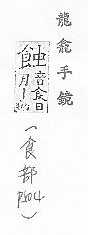 龍龕手鏡
蝕
音食日
月丨
(食部 P504)